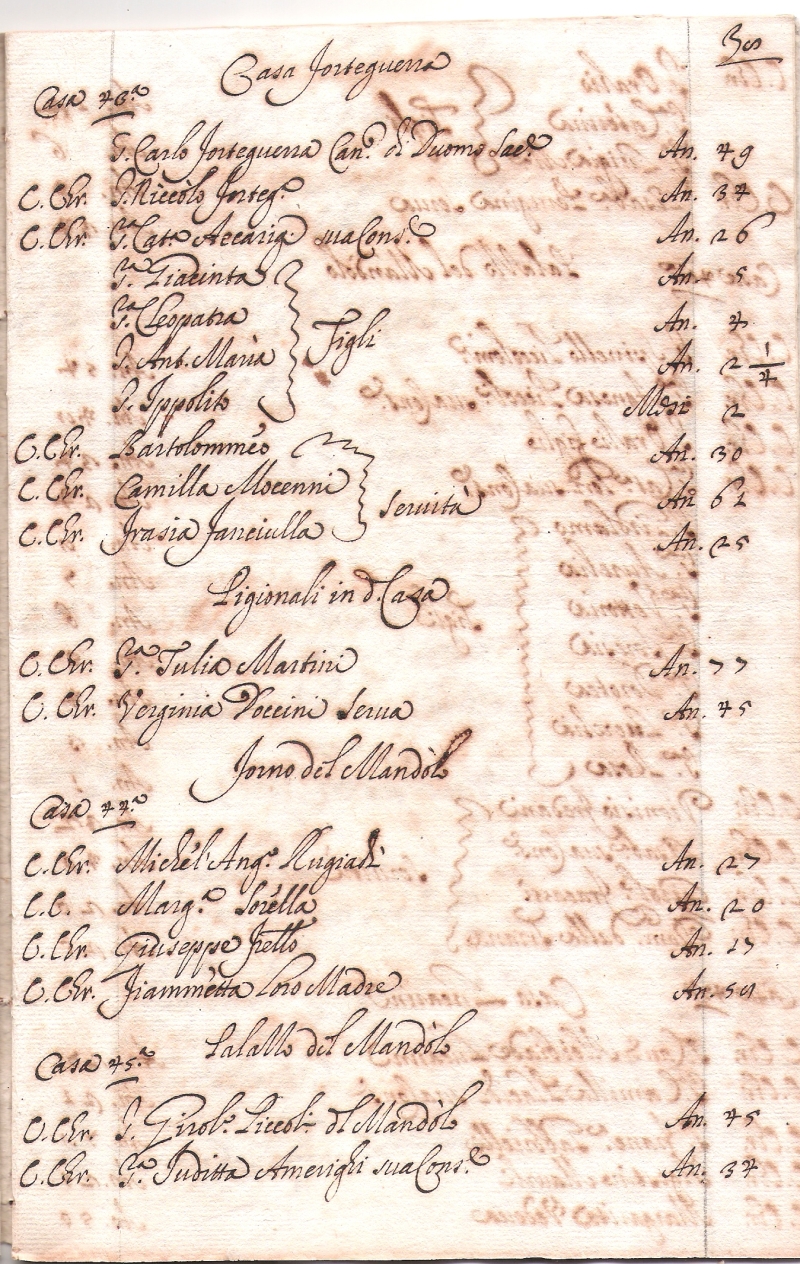 Casa Forteguerra
Casa 43.a
S. Carlo Forteguerra Can.o di Duomo Sac.e An. 49
C. Chr. S. Niccolò Forteg.a An. 34
C. Chr. S.a Cat.a Accarigi sua Cons.e An. 26
S.a Giacinta An. 5
S.a Cleopatra An. 4
Figli
S. Ant. Maria An. 2 1/4
S. Ippolito Mesi 2
C. Chr. Bartolommeo An. 30
C. Chr. Camilla Mocenni An 61
Servità
C. Chr. Frasia Fanciulla An. 25
Pigionali in d. Casa
C. Chr. S.a Tulia Martini An. 77
C. Chr. Verginia Doccini Serva An. 45
Forno del Mandòlo
Casa 44.a
C. Chr. Michel' Ang.o Rugiadi An. 27
C. C. Marg.a Sorella An. 20
C. Chr. Giuseppe Frello An. 17
C. Chr. Fiammetta loro Madre An. 50
Palazzo del Mandòlo
Casa 45.a
C. Chr. S. Girol.o Piccol.i del Mandòlo An. 45
C. Chr. S.a Juditta Amerighi sua Cons.e An. 34